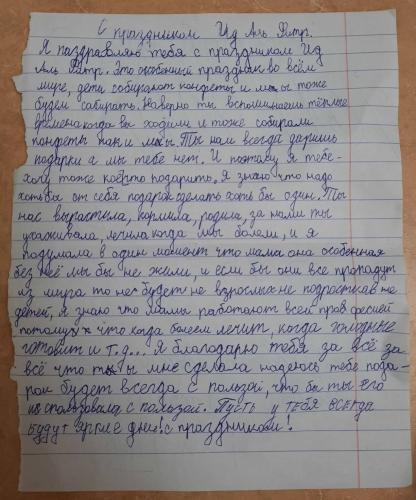 С праздником Ид Аль Фитр.
Я паздравляю тебя с праздником Ид
Аль Фитр. Это особенный праздник во всём
мире, дети собирают конфеты и мы тоже
будем собирать. Наверно ты вспоминаешь тёплые
времена когда вы ходили и тоже собирали
конфеты как и мы. Ты нам всегда даришь
подарки а мы тебе нет. И поэтому я тебе
хочу тоже кое что подарить. Я знаю что надо
хотьбы от себя подарок сделать хоть бы один. Ты
нас вырастила, кормила, родила, за нами ты
ухаживала, лечила когда мы болели, и я
подумала в один момент что мама она особенная
без неё мы бы не жили, и если бы они все пропадут
из мира то не будет не взрослых не подростков не
детей, я знаю что мамы работают всей професией
потому что когда болеем лечит, когда голодные
готовит и т.д... Я благодарю тебя за всё за
всё что ты мне сделала надеюсь тебе пода-
рок будет всегда с пользой, что бы ты его
использовала с пользой. Пусть у тебя всегда
будут яркие дни! С праздником!